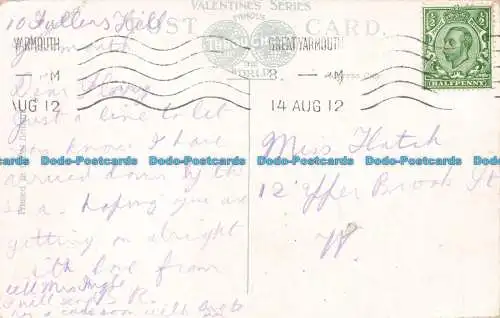 VALENTINE'S SERIES
FAMOUS
POST CARD.
THROUGHOUT
THE
WORLD
10 Fullers Hill
Yarmouth
YARMOUTH
AUG 12
GREAT YARMOUTH
14 AUG 12
HALFPENNY
Dear
Just a line to let
you know I have
arrived down by the
sea. hoping you are
getting on alright
with love from
tell Mrs
I will send
her a card soon with love to
Miss Hatch
12 Upper Brook St
W.
Dodo-Postcards Dodo-Postcards Dodo-Postcards Dodo-Postcards